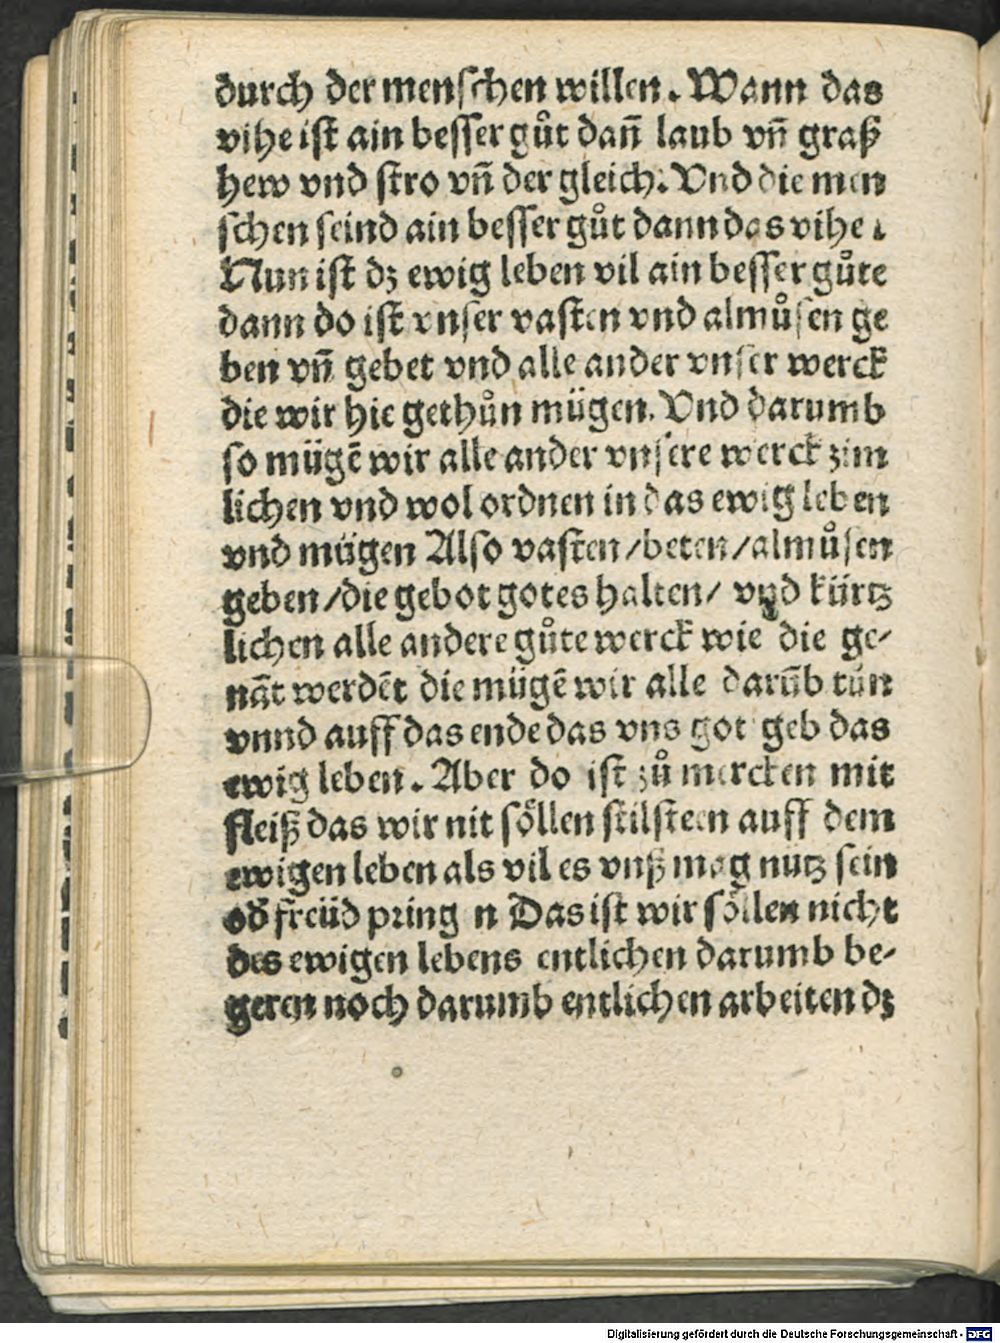 durch der menſchen willen. Wann das
vihe iſt ain beſſer gůt dañ laub vñ graß
hew vnd ſtro vñ der gleich. Vnd die men
ſchen ſeind ain beſſer gůt dann das vihe.
Nun iſt dz ewig leben vil ain beſſer gůte
dann do iſt vnſer vaſten vnd almůſen ge
ben vñ gebet vnd alle ander vnſer werck
die wir hie gethůn mügen. Vnd darumb
ſo mügē wir alle ander vnſere werck zim
lichen vnd wol ordnen in das ewig leben
vnd mügen Alſo vaſten/beten/almůſen
geben/die gebot gotes halten/ vnd kürtz
lichen alle andere gůte werck wie die ge-
nāt werdēt die mügē wir alle darūb tůn
vnnd auff das ende das vns got geb das
ewig leben. Aber do iſt zů mercken mit
fleiß das wir nit ſöllen ſtilſteen auff dem
ewigen leben als vil es vnß mag nutz ſein
od̄ freüd pringen Das iſt wir ſöllen nicht
des ewigen lebens entlichen darumb be-
geren noch darumb entlichen arbeiten dz
Digitalisierung gefördert durch die Deutsche Forschungsgemeinschaft - DFG